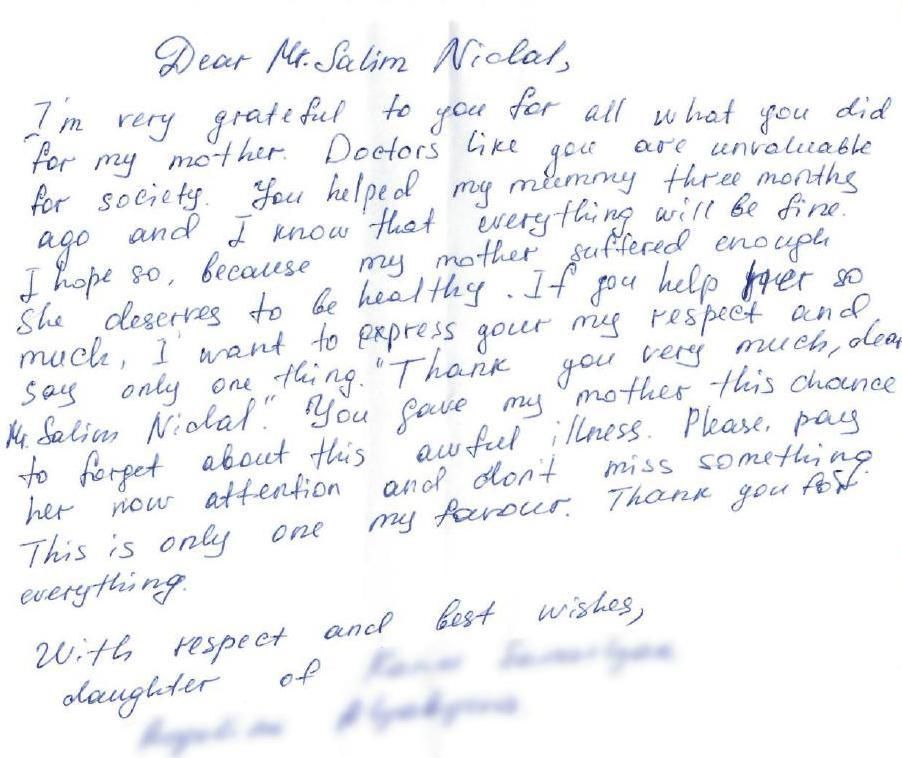 Dear Mr. Salim Nidal,
I'm very grateful to you for all what you did
for my mother. Doctors like you are unvaluable
for society. You helped my mummy three months
ago and I know that everything will be fine.
I hope so, because my mother suffered enough
She deserves to be healthy. If you help her so
much, I want to express your my respect and
say only one thing. "Thank you very much, dear
Mr. Salim Nidal". You gave my mother this chance
to forget about this awful illness. Please, pay
her now attention and don't miss something.
This is only one my favour. Thank you for
everything.
With respect and best wishes,
daughter of